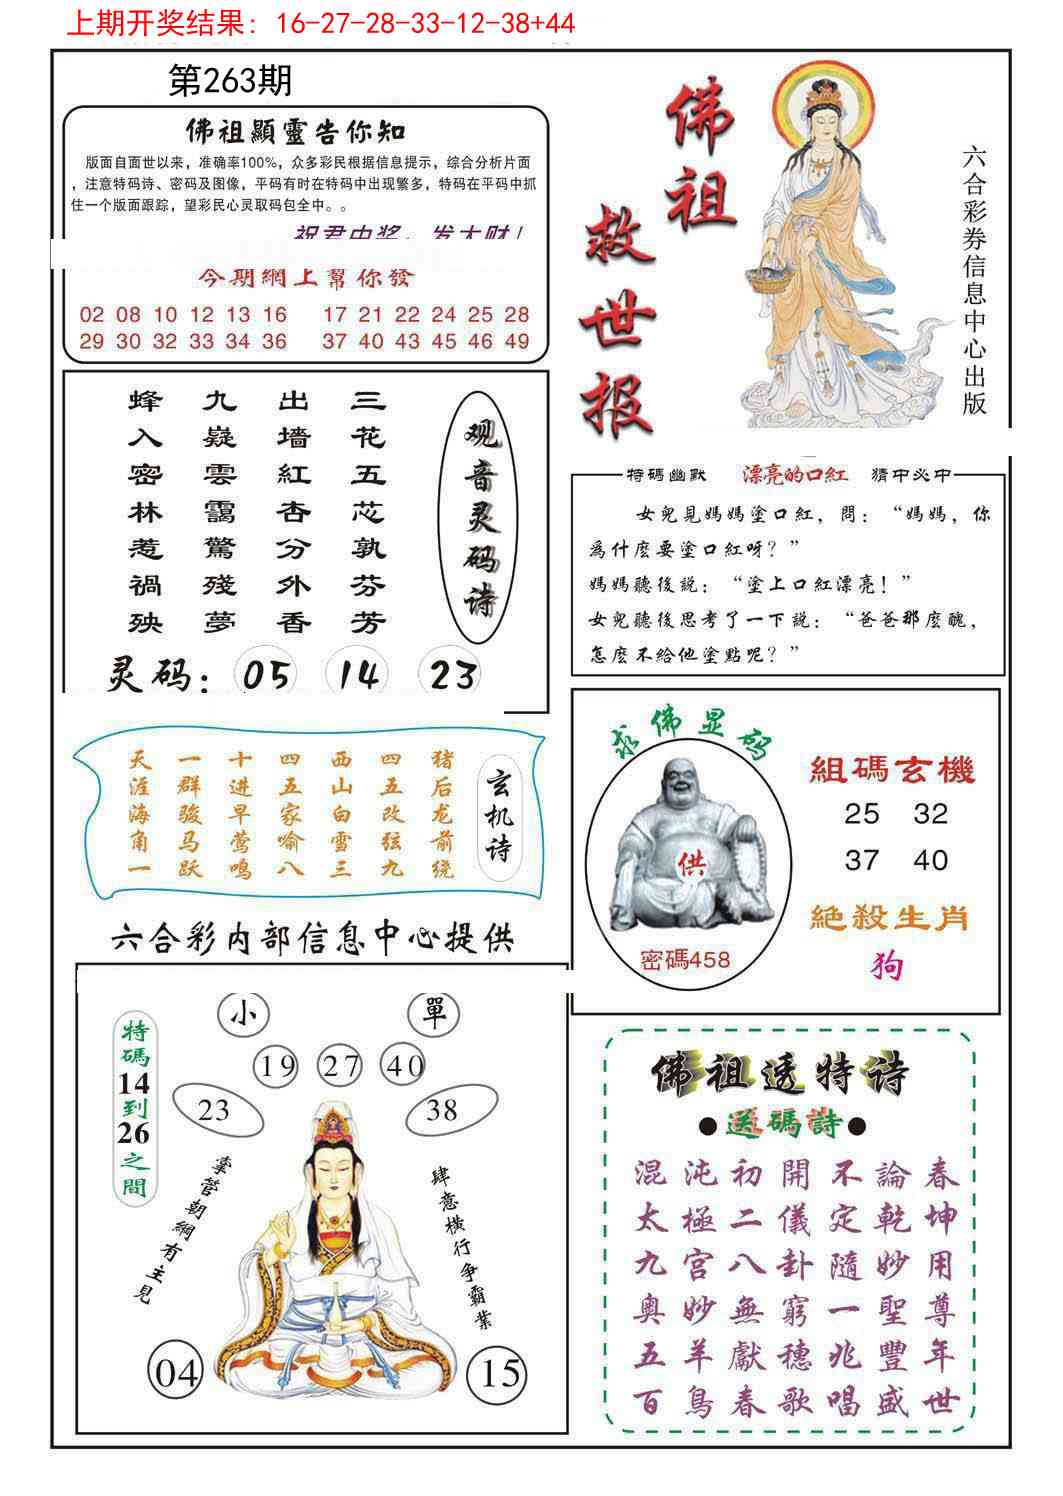 上期开奖结果：16-27-28-33-12-38+44
第263期
佛祖顯靈告你知
版面自面世以来，准确率100%，众多彩民根据信息提示，综合分析片面
，注意特码诗、密码及图像，平码有时在特码中出现繁多，特码在平码中抓
住一个版面跟踪，望彩民心灵取码包全中。。
祝君中奖，发大财！
今期網上幫你發
02 08 10 12 13 16 17 21 22 24 25 28
29 30 32 33 34 36 37 40 43 45 46 49
佛祖
救世报
六合彩券信息中心出版
观音灵码诗
三花五芯孰芬芳
出墙紅杏分外香
九嶷雲靄驚殘夢
蜂入密林惹禍殃
灵码：05 14 23
特碼幽默 漂亮的口紅 猜中必中
女兒見媽媽塗口紅，問：“媽媽，你
爲什麽要塗口紅呀？”
媽媽聽後説：“塗上口紅漂亮！”
女兒聽後思考了一下説：“爸爸那麽醜，
怎麽不給他塗點呢？”
玄机诗
猪后龙前绕
四五改弦九
西山白雪三
四五家喻八
十进早莺鸣
一群骏马跃
天涯海角一
求佛显码
供
密碼458
組碼玄機
25 32
37 40
絶殺生肖
狗
六合彩内部信息中心提供
特碼14到26之間
小 單
19 27 40
23 38
掌管朝綱有主見
肆意橫行争霸業
04 15
佛祖透特诗
●送碼詩●
混沌初開不論春
太極二儀定乾坤
九宫八卦隨妙用
奥妙無窮一聖尊
五羊獻穗兆豐年
百鳥春歌唱盛世